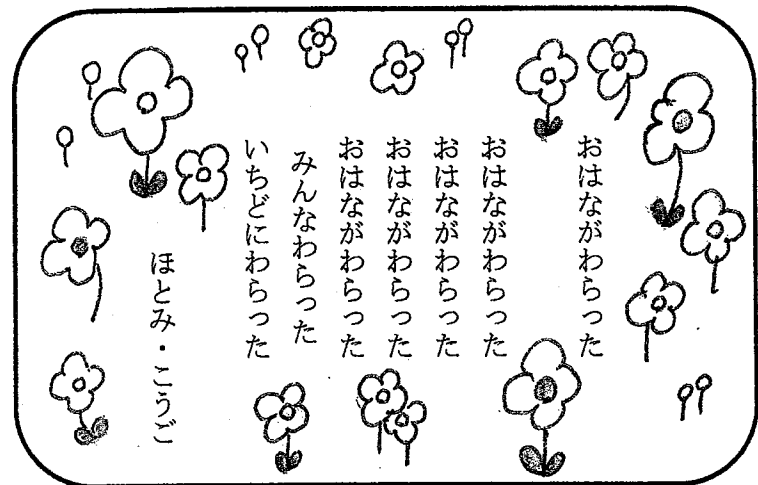 おはながわらった
おはながわらった
おはながわらった
おはながわらった
おはながわらった
みんなわらった
いちどにわらった
ほとみ・こうご